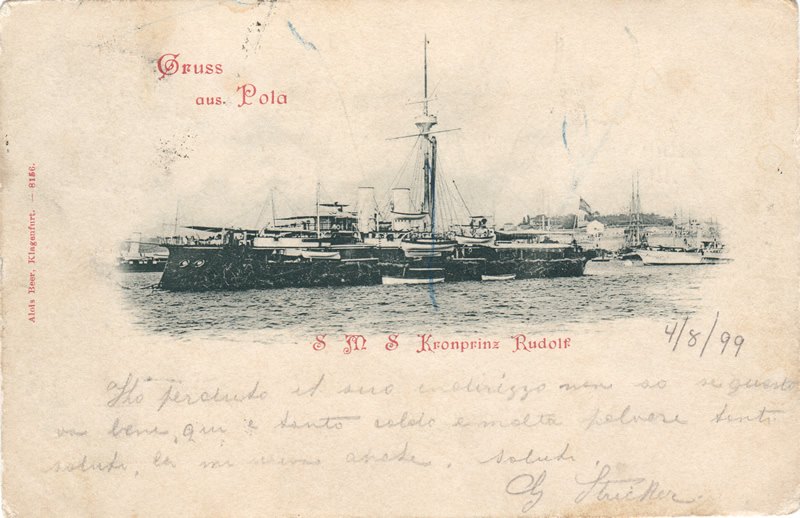 Gruss
aus. Pola
Alois Beer, Klagenfurt. — 8156.
S M S Kronprinz Rudolf
4/8/99
Ho perduto il suo indirizzo non so se questo
va bene, qui e tanto caldo e molta polvere tanti
saluti, mi anche. Saluti
G Stricker